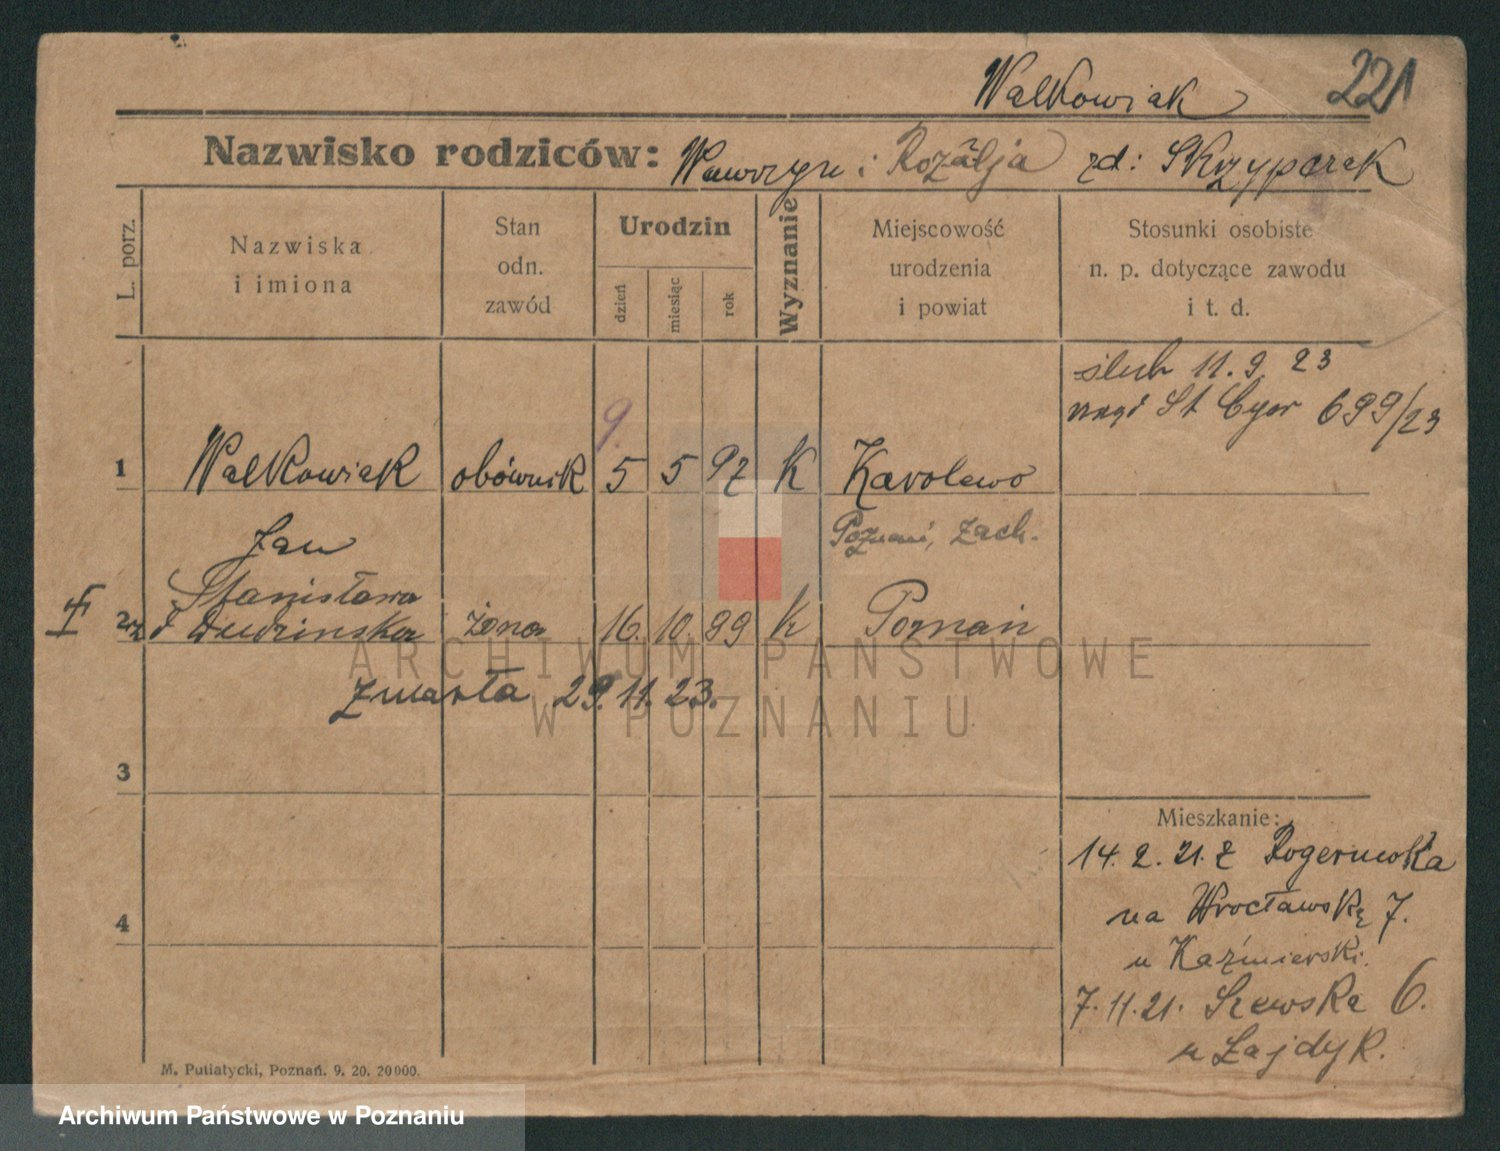 Walkowiak 221
Nazwisko rodziców: Wawrzyn i Rozalja zd: Skrzypczak
L. porz.
Nazwiska i imiona
Stan odn. zawód
Urodzin
dzień miesiąc rok
Wyznanie
Miejscowość urodzenia i powiat
Stosunki osobiste n. p. dotyczące zawodu i t. d.
ślub 11. 9. 23
St 699/23
9.
1 Walkowiak obównik 5 5 97 K Karolewo
Jan
Poznań, zach.
Stanisława
2 żona 16. 10. 99 K Poznań
zmarła 29. 11. 23.
3
Mieszkanie:
14. 2. 21. z
na Wrocławską 7.
4
u Kaźmierski.
7. 11. 21. Szewska 6.
u Łajdyk.
M. Putiatycki, Poznań. 9. 20. 20000.
ARCHIWUM PAŃSTWOWE
W POZNANIU
Archiwum Państwowe w Poznaniu